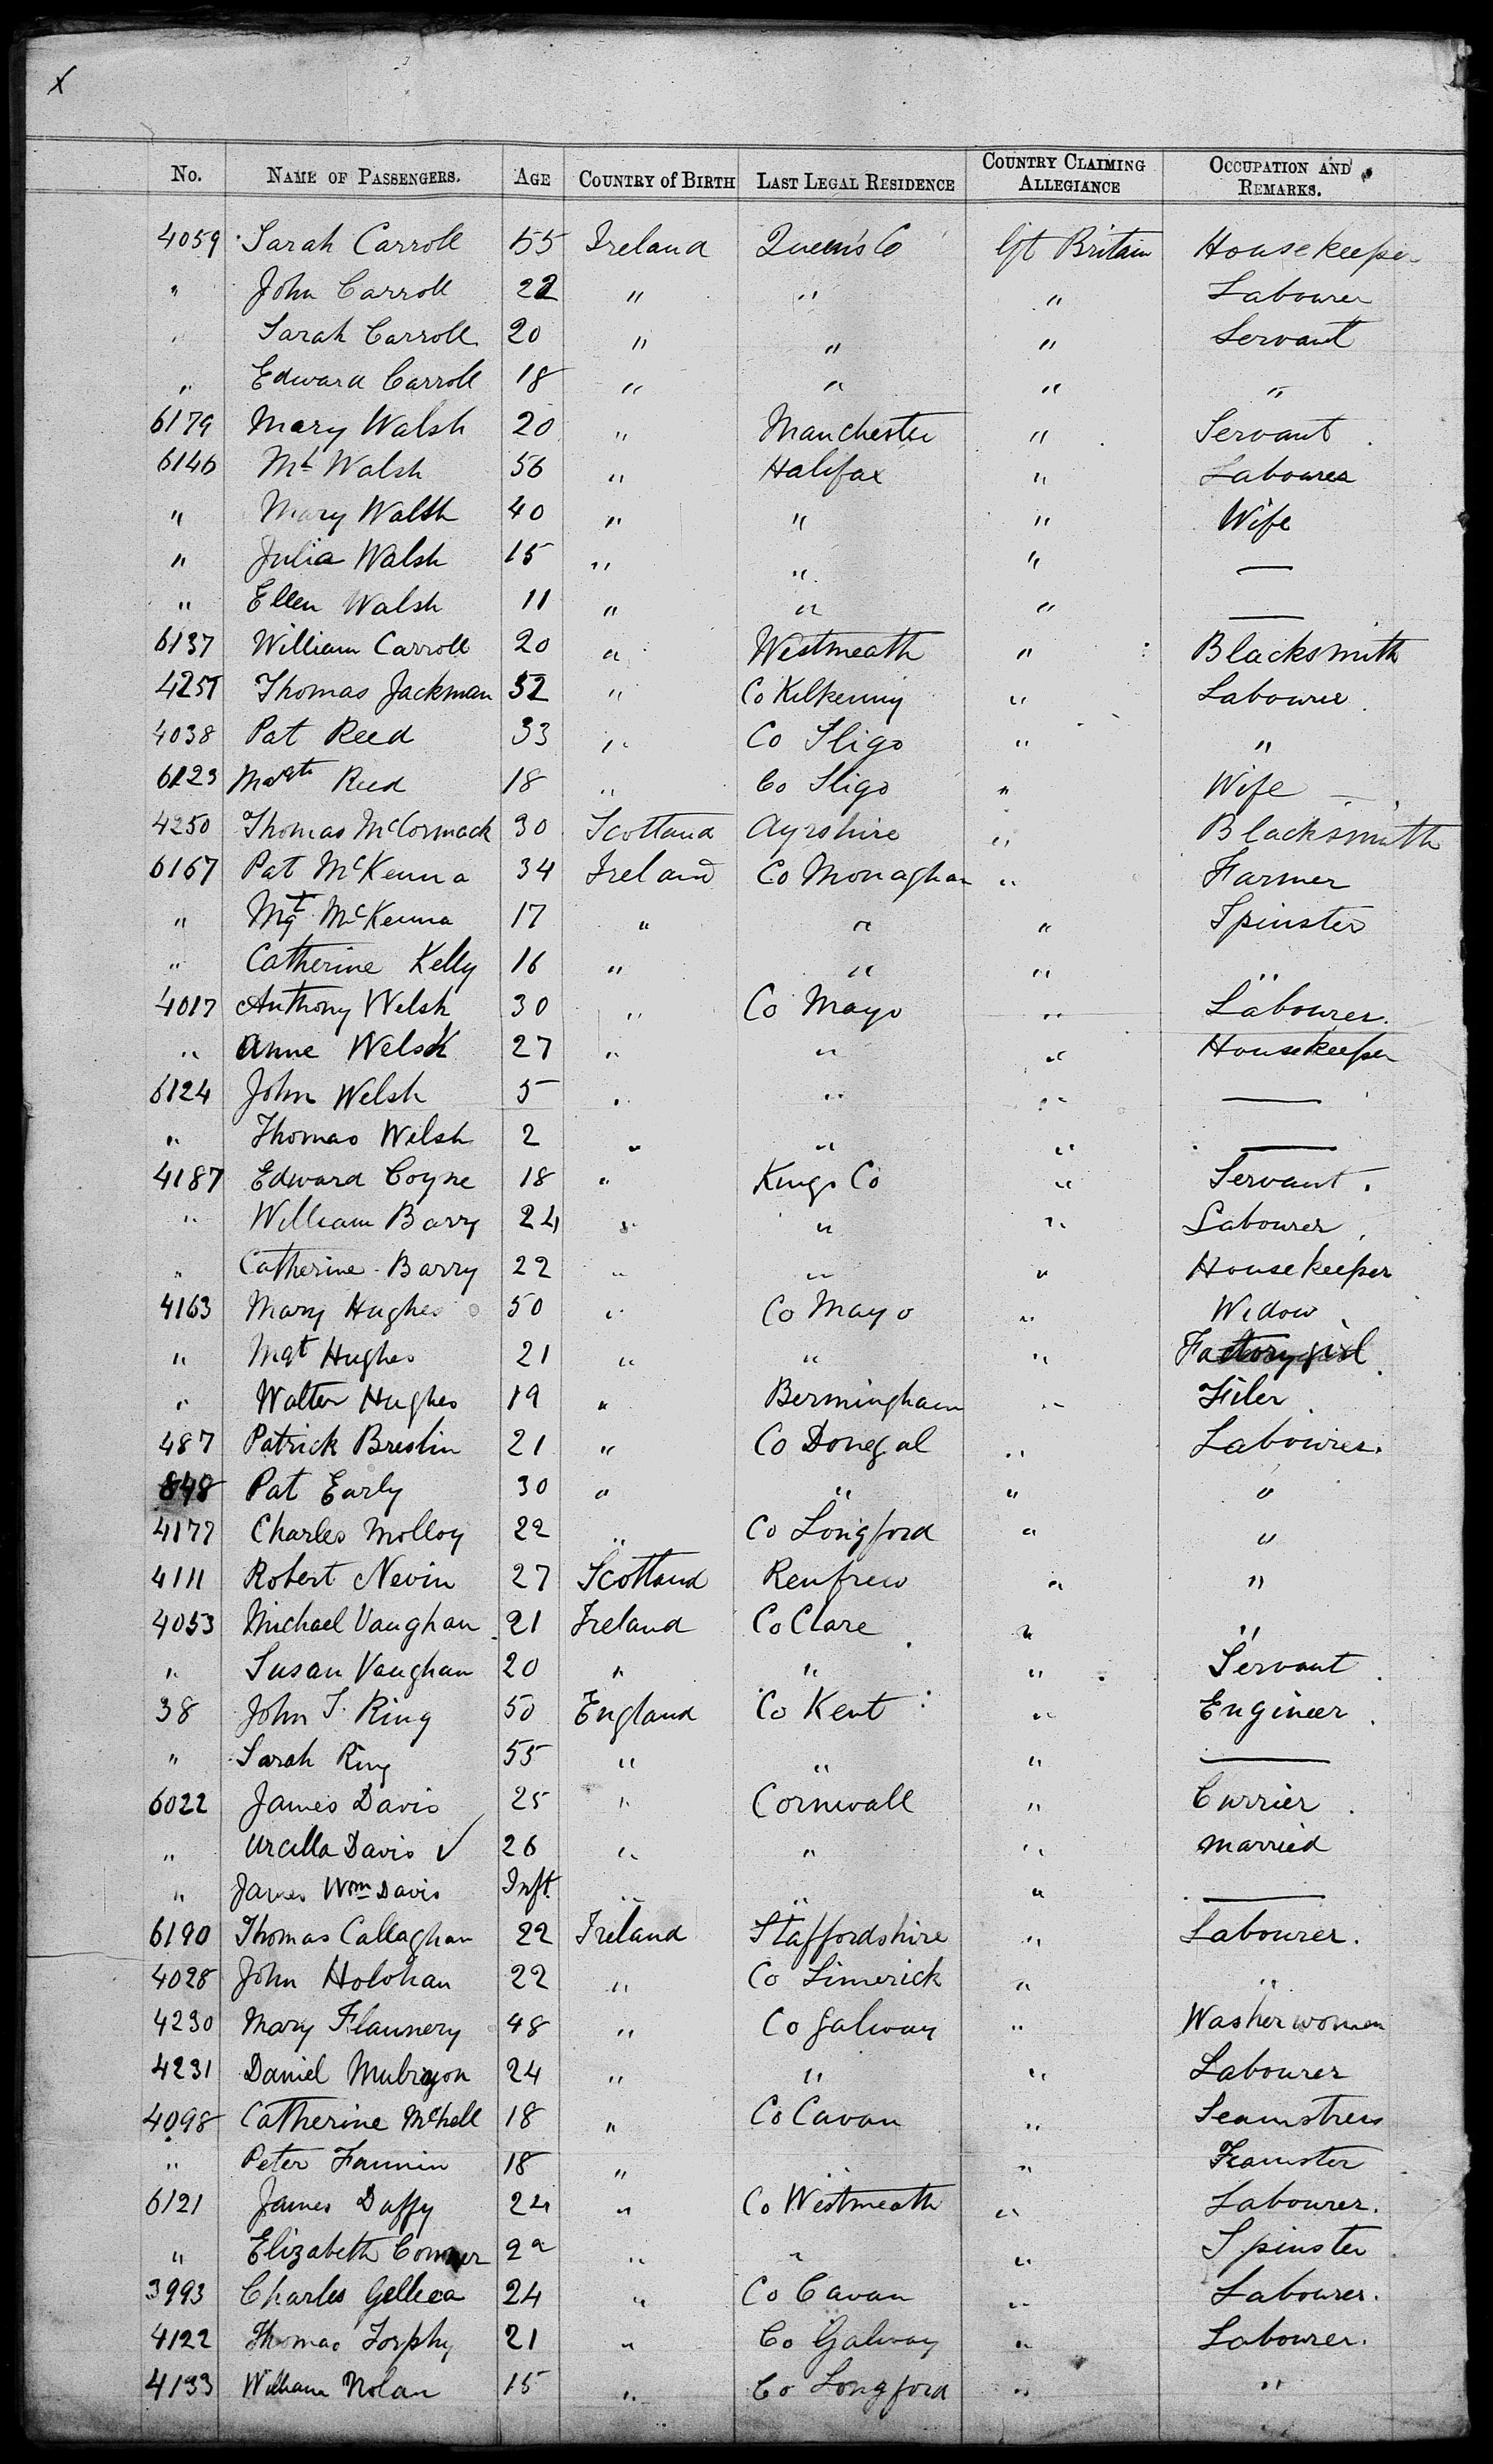 x
No. NAME OF PASSENGERS. AGE COUNTRY of BIRTH LAST LEGAL RESIDENCE COUNTRY CLAIMING ALLEGIANCE OCCUPATION AND REMARKS.
4059 Sarah Carroll 55 Ireland Queen's Co Gt Britain Housekeeper
" John Carroll 22 " " " Labourer
" Sarah Carroll 20 " " " Servant
" Edward Carroll 18 " " " "
6179 Mary Walsh 20 " Manchester " Servant
6146 Mt Walsh 56 " Halifax " Labourer
" Mary Walsh 40 " " " Wife
" Julia Walsh 15 " " " —
" Ellen Walsh 11 " " " —
6137 William Carroll 20 " Westmeath " Blacksmith
4251 Thomas Jackman 52 " Co Kilkenny " Labourer
4038 Pat Reed 33 " Co Sligo " "
6123 Margt Reed 18 " Co Sligo " Wife
4250 Thomas McCormack 30 Scotland Ayrshire " Blacksmith
6167 Pat McKenna 34 Ireland Co Monaghan " Farmer
" Mgt McKenna 17 " " " Spinster
" Catherine Kelly 16 " " " "
4017 Anthony Welsh 30 " Co Mayo " Labourer.
" Anne Welsh 27 " " " Housekeeper
6124 John Welsh 5 " " " —
" Thomas Welsh 2 " " " —
4187 Edward Coyne 18 " Kings Co " Servant.
" William Barry 24 " " " Labourer
" Catherine Barry 22 " " " Housekeeper
4163 Mary Hughes 50 " Co Mayo " Widow
" Mgt Hughes 21 " " " Factory girl
" Walter Hughes 19 " Bermingham " Filer
487 Patrick Breslin 21 " Co Donegal " Labourer.
848 Pat Early 30 " " " "
4177 Charles Molloy 22 " Co Longford " "
4111 Robert Nevin 27 Scotland Renfrew " "
4053 Michael Vaughan 21 Ireland Co Clare " "
" Susan Vaughan 20 " " " Servant
38 John S. Ring 50 England Co Kent " Engineer
" Sarah Ring 55 " " " —
6022 James Davis 25 " Cornwall " Currier
" Urcilla Davis ✓ 26 " " " married
" James Wm Davis Inft " " " —
6190 Thomas Callaghan 22 Ireland Staffordshire " Labourer.
4028 John Holohan 22 " Co Limerick " "
4230 Mary Flannery 48 " Co Galway " Washerwoman
4231 Daniel 24 " " " Labourer
4098 Catherine 18 " Co Cavan " Seamstress
" Peter Fannin 18 " " " Teamster
6121 James Duffy 24 " Co Westmeath " Labourer.
" Elizabeth Connor 22 " " " Spinster
3993 Charles 24 " Co Cavan " Labourer.
4122 Thomas Torphy 21 " Co Galway " Labourer.
4133 William Nolan 15 " Co Longford " "